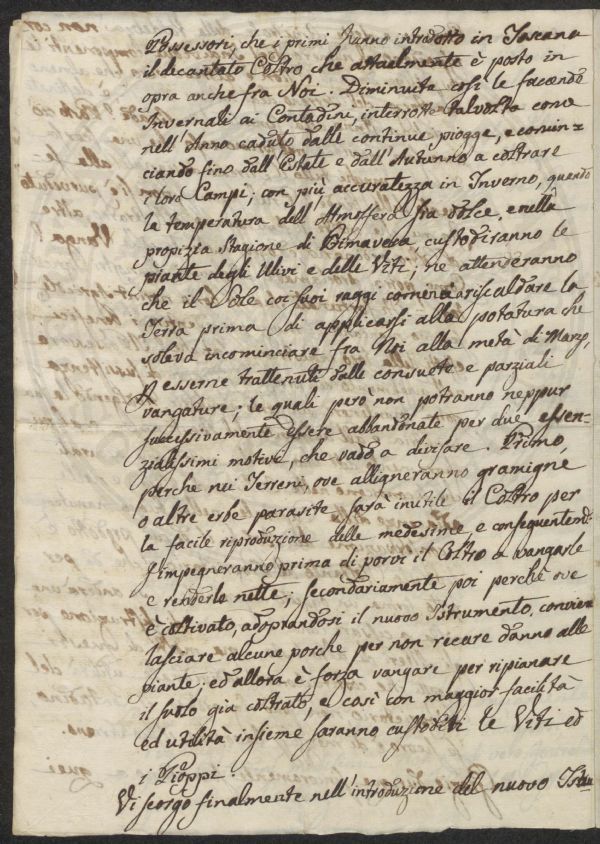 Possessori, che i primi hanno introdotto in Toscana
il decantato Coltro che attualmente è posto in
opra anche fra Noi. Diminuite così le facende
Invernali ai Contadini, interrotte talvolta come
nell'Anno caduto dalle continue piogge, e comin=
ciando fino dall'Estate e dall'Autunno a coltrare
i loro Campi; con più accuratezza in Inverno, quando
la temperatura dell'Atmosfera sia dolce, e nella
propizia Stagione di Primavera, custodiranno le
piante degli Ulivi e delle Viti; ne attenderanno
che il Sole coi suoi raggi cominci a riscaldare la
Terra prima di applicarsi alla potatura che
soleva incominciare fra Noi alla metà di Marzo,
p esserne trattenuti dalle consuete e parziali
vangature; le quali però non potranno neppur
successivamente essere abbandonate per due essen=
zialissimi motivi, che vado a divisare. Primo,
perche nei Terreni, ove alligneranno gramigne
o altre erbe parasite sarà inutile il Coltro per
la facile riproduzione delle medesime e conseguentemte
s'impegneranno prima di porvi il Coltro a vangarle
e renderle nette; secondariamente poi perchè ove
è coltivato, adoprandosi il nuovo Istrumento, convien
lasciare alcune porche per non recare danno alle
piante; ed allora è forza vangare per ripianare
il suolo gia coltrato, e così con maggior facilità
ed utilità insieme saranno custoditi le Viti ed
i Pioppi.
Vi scorgo finalmente nell'introduzione del nuovo Istru